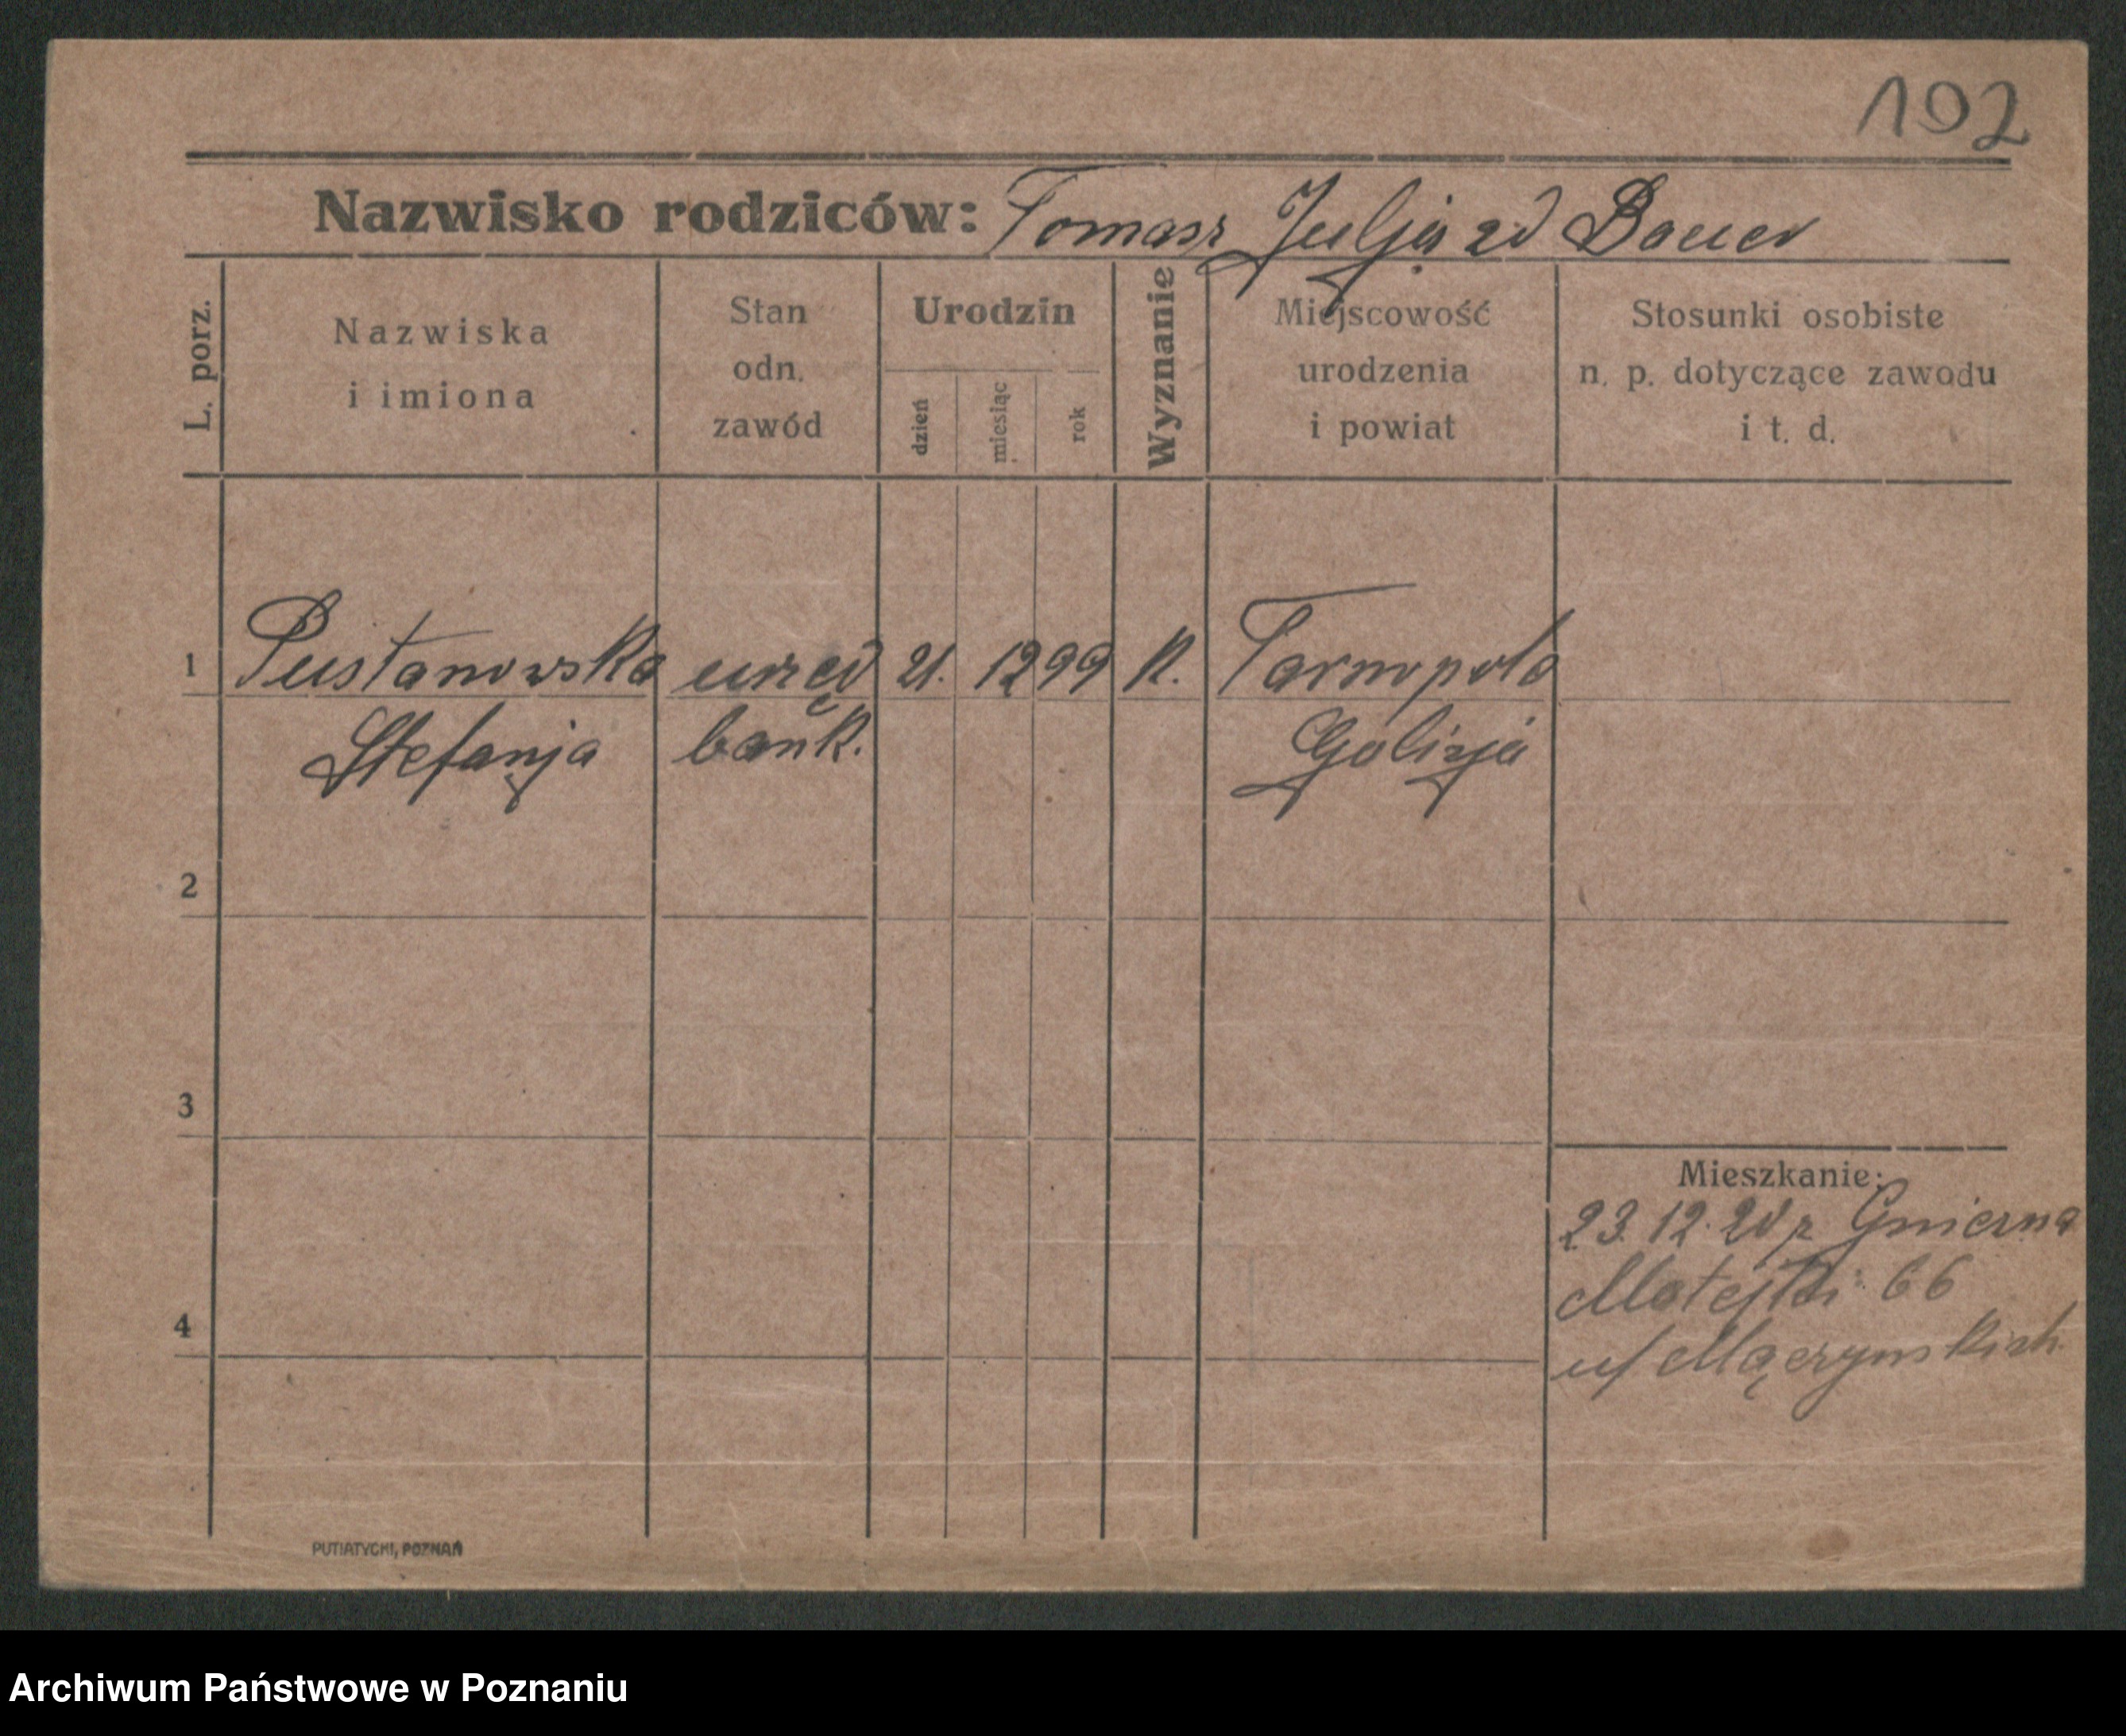 192
Nazwisko rodziców: Tomasz Julja zd Bauer
L. porz.
Nazwiska
i imiona
Stan
odn.
zawód
Urodzin
dzień
miesiąc
rok
Wyznanie
Miejscowość
urodzenia
i powiat
Stosunki osobiste
n. p. dotyczące zawodu
i t. d.
1 Pustanowska urzęd 21. 12 99 K. Tarnopola
Stefanja bank. Galizja
2
3
4
Mieszkanie:
23.12.20 z Gniezna
Matejki 66
u/ Mączynskich
PUTIATYCKI, POZNAŃ
Archiwum Państwowe w Poznaniu